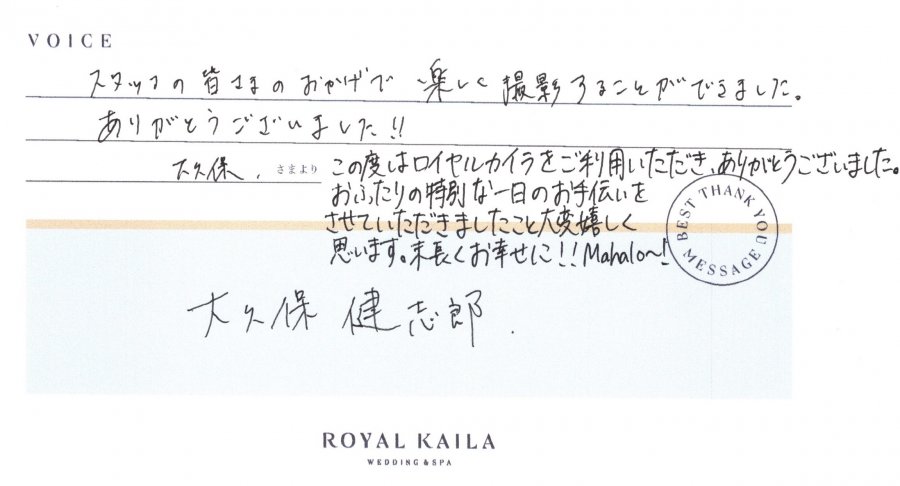 VOICE
スタッフの皆さまのおかげで 楽しく撮影することができました。
ありがとうございました!!
大久保. さまより
この度はロイヤルカイラをご利用いただき、ありがとうございました。
おふたりの特別な一日のお手伝いを
させていただきましたこと大変嬉しく
思います。末長くお幸せに!!Mahalo〜!
BEST THANK YOU MESSAGE
大久保 健志郎.
ROYAL KAILA
WEDDING & SPA